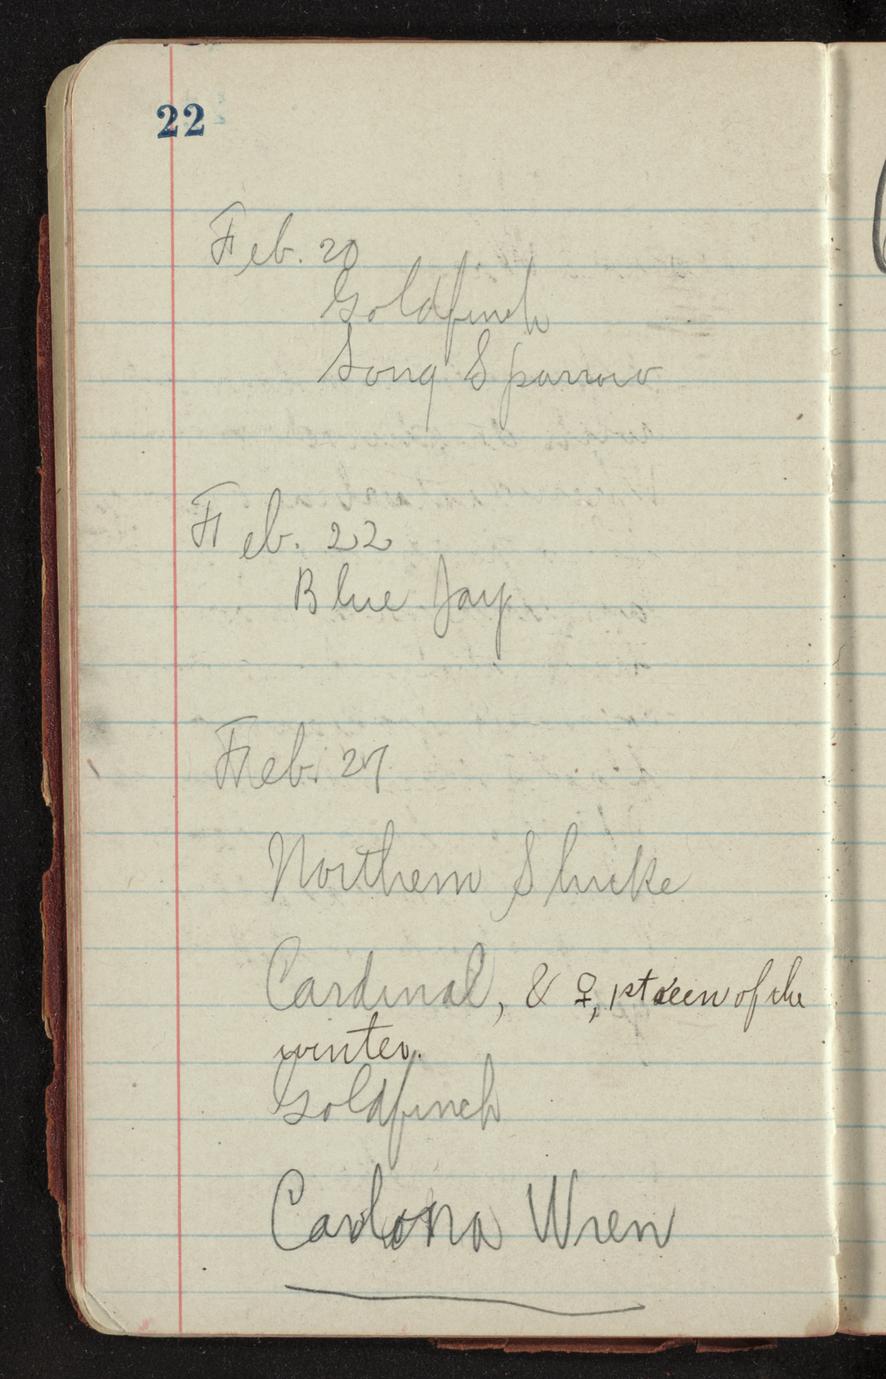 22
Feb. 20
Goldfinch
Song Sparrow
Feb. 22
Blue Jay
Feb. 27
Northern Shrike
Cardinal, & ♀, 1st seen of the
winter.
Goldfinch
Carolina Wren